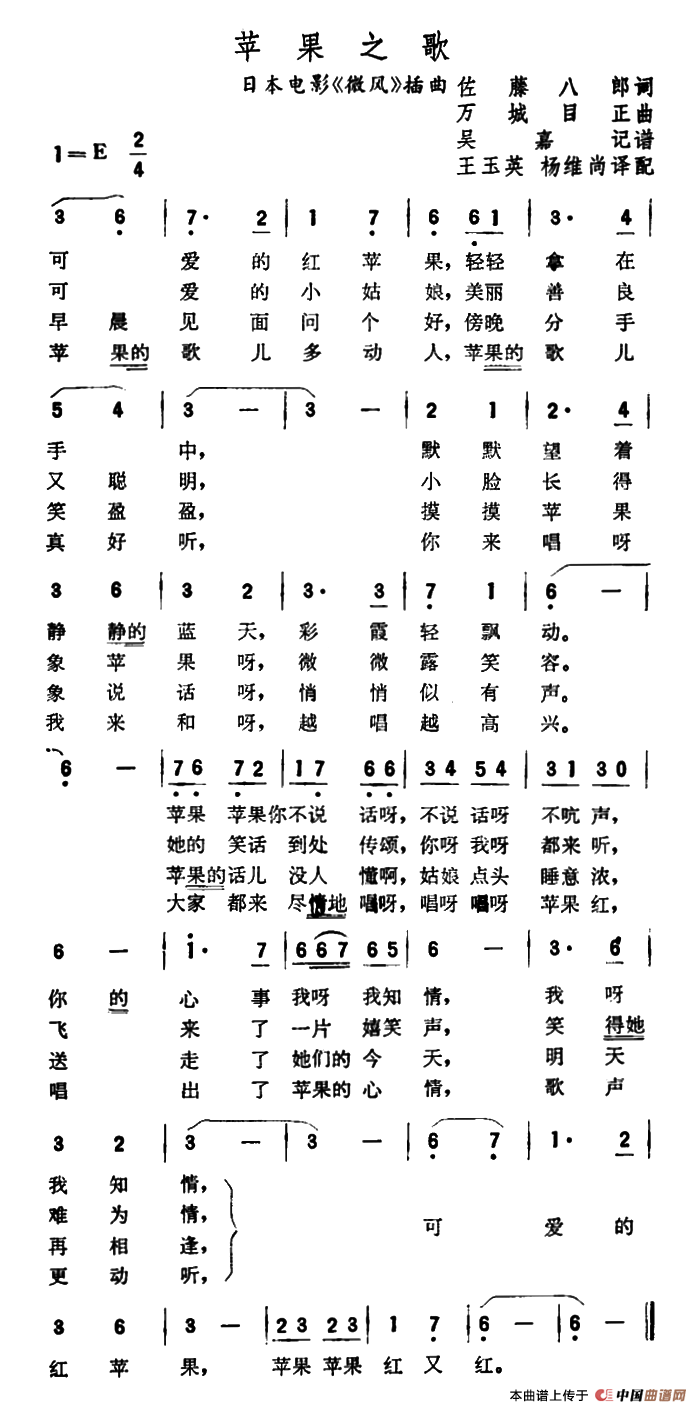 苹果之歌
日本电影《微风》插曲 佐藤八郎词
万城目正曲
吴嘉记谱
1=E 2/4 王玉英 杨维尚译配
3 6 | 7· 2 | 1 7 | 6 61 | 3· 4 |
可 爱的红苹果,轻轻拿在
可 爱的小姑娘,美丽善良
早晨见面问个好,傍晚分手
苹果的歌儿多动人,苹果的歌儿
5 4 | 3 — | 3 — | 2 1 | 2· 4 |
手 中, 默默望着
又聪明, 小脸长得
笑盈盈, 摸摸苹果
真好听, 你来唱呀
3 6 | 3 2 | 3· 3 | 7 1 | 6 — |
静静的蓝天,彩霞轻飘动。
象苹果呀,微微露笑容。
象说话呀,悄悄似有声。
我来和呀,越唱越高兴。
6 — | 76 72 | 17 66 | 34 54 | 31 30 |
苹果 苹果你不说 话呀,不说话呀 不吭声,
她的 笑话 到处 传颂,你呀我呀 都来听,
苹果的话儿 没人 懂啊,姑娘点头 睡意浓,
大家 都来 尽情地 唱呀,唱呀唱呀 苹果红,
6 — | 1· 7 | 667 65 | 6 — | 3· 6 |
你的心事我呀我知情, 我呀
飞 来了一片嬉笑声, 笑得她
送 走了她们的今天, 明天
唱 出了苹果的心情, 歌声
3 2 | 3 — | 3 — | 6 7 | 1· 2 |
我知情,
难为情,
再相逢,
更动听,
可 爱的
3 6 | 3 — | 23 23 | 1 7 | 6 — | 6 — ‖
红苹果, 苹果 苹果 红又红。
本曲谱上传于 中国曲谱网